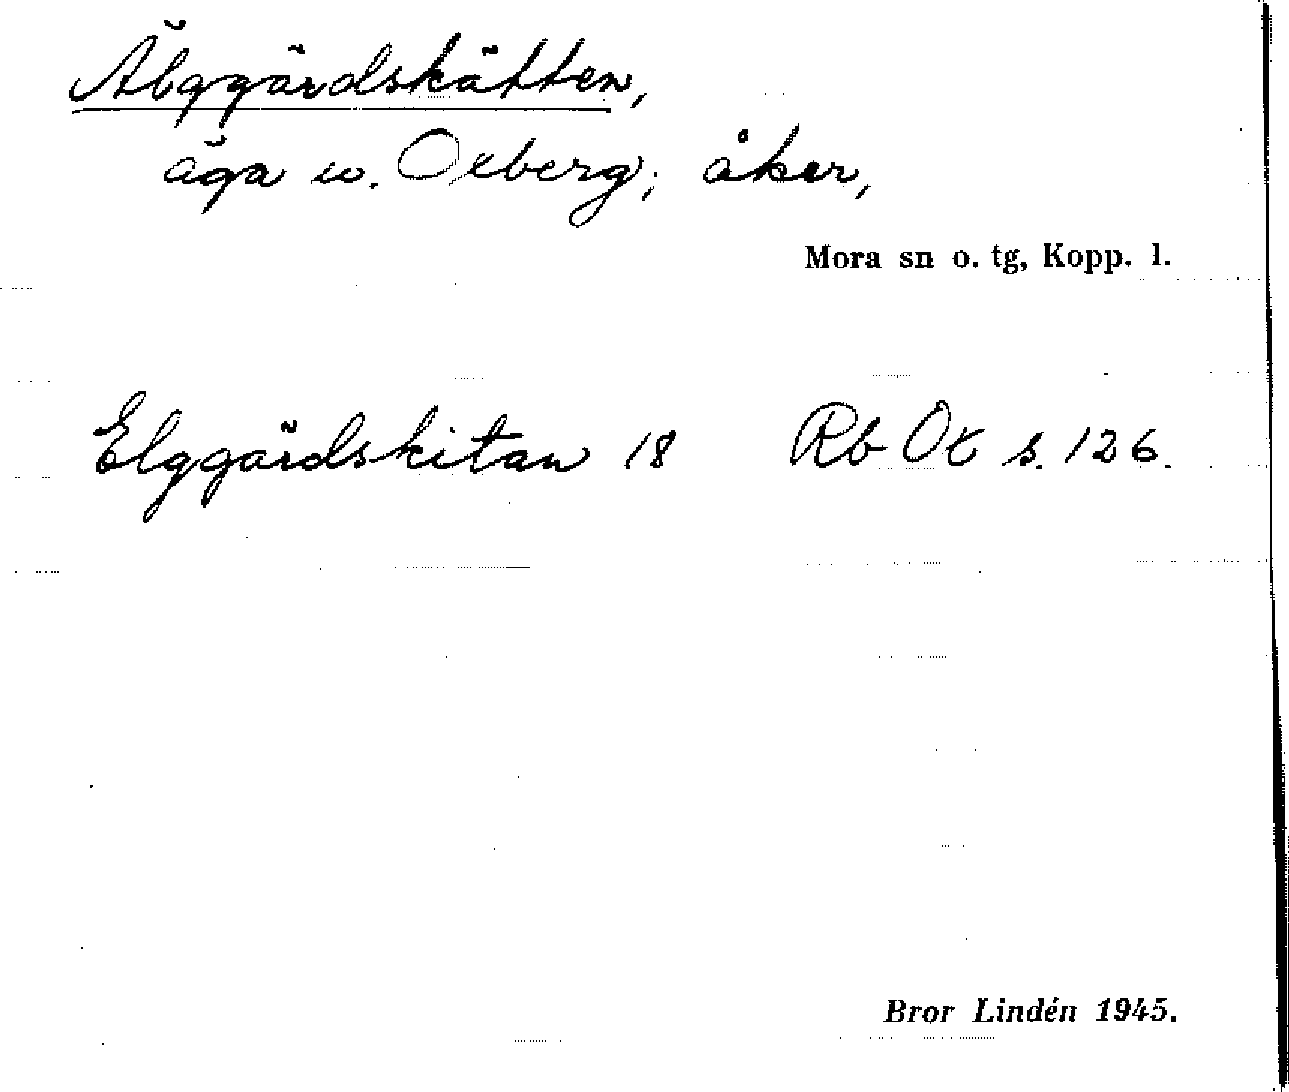 Älggärdskätten,
äga u. Oxberg; åker,
Mora sn o. tg, Kopp. l.
Elggärdskitan 18 Rb Ot s. 126.
Bror Lindén 1945.